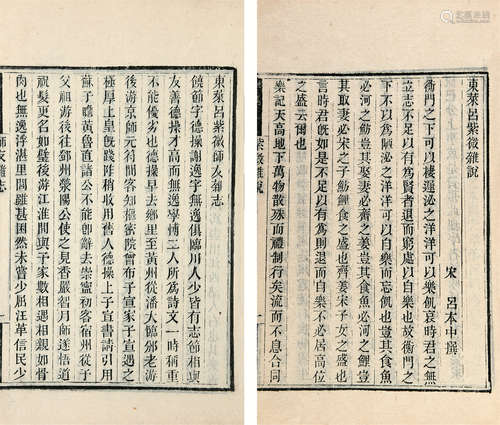 東萊呂紫微雜説
宋 呂本中撰
衡門之下可以棲遲泌之洋洋可以樂飢哀時君之無
立志不足以有為賢者退而窮處以自樂也故衡門之
下不以為陋泌之洋洋可以自樂而忘飢也豈其食魚
必河之魴豈其娶妻必齊之姜豈其食魚必河之鯉豈
其取妻必宋之子魴鯉食之盛也齊姜宋子女之盛也
言時君旣如此又何以有為則退而自樂不必居高位
之盛云爾也
樂記天高地下萬物散殊而禮制行矣流而不息合同
紫微雜説
東萊呂紫微師友雜志
饒節字德操謝逸字無逸俱臨川人少皆有志節相與
友善德操才高而無逸學博二人所為詩文一時稱重
不能優劣也德操早去鄉里至黃州從潘大臨邠老游
後游京師元符間客知樞密院曾布子宣家子宣遇之
極厚上皇旣踐祚稍收用舊人德操上子宣書請引用
蘇子瞻黃魯直諸公不能卽辭去崇寧初客宿州從予
父祖游後往鄧州滎陽公使之見香嚴智月師遂悟道
祝髮更名如璧後游江淮間與予家數相遇相親如骨
肉也無逸浮湛里閈雖甚困然未嘗少屈汪革信民少
師友雜志